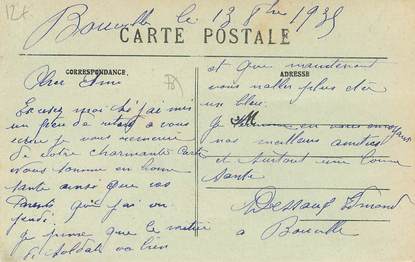 12€
Bouville le 13 8bre 1935
CARTE POSTALE
CORRESPONDANCE
ADRESSE
Cher Ami
Excusez moi si j'ai mis
un peu de retard a vous
ecrire je vous remercie
de votre charmante Carte
Nous somme en bonne
sante ainsi que vos
Parents que j'ai vu
jeudi
je pense que le metier
de soldat va bien
et que maintenant
vous n'allez plus etre
un bleu.
Je en vous envoyant
nos meilleurs amities
et surtout une bonne
sante
Edmond
a Bouville